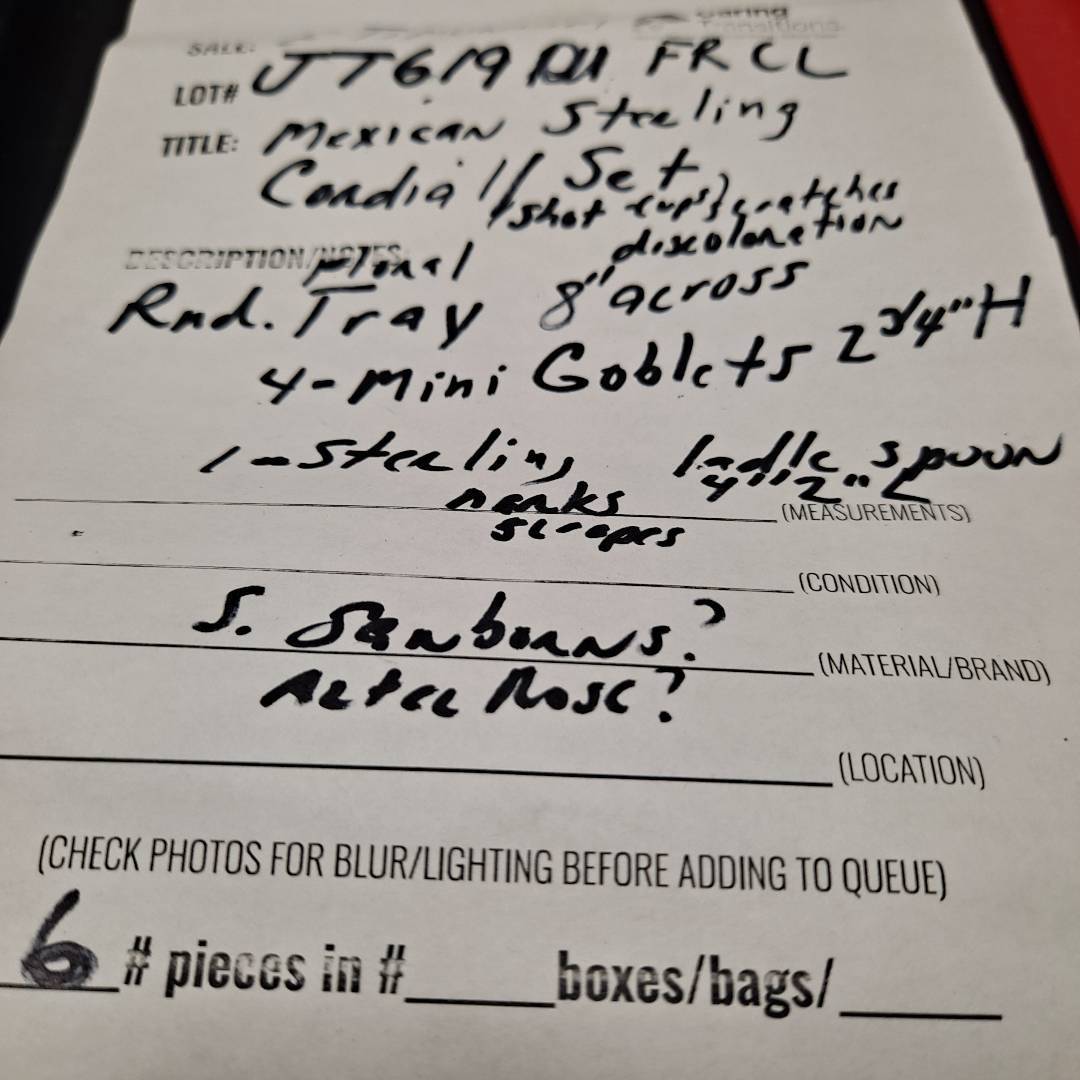 Caring
Transitions
SALE:
LOT# JT619 RU FRCL
TITLE: Mexican Sterling
Cordial/ Set
/shot cups} scratches
discoloration
DESCRIPTION/NOTES: Floral
Rnd. Tray 8" across
4-Mini Goblets 2 3/4" H
1-Sterling ladle spoon
4" 2" L
marks (MEASUREMENTS)
scrapes
(CONDITION)
S. Sanborns?
(MATERIAL/BRAND)
Aztec Rose?
(LOCATION)
(CHECK PHOTOS FOR BLUR/LIGHTING BEFORE ADDING TO QUEUE)
6 # pieces in #____boxes/bags/____